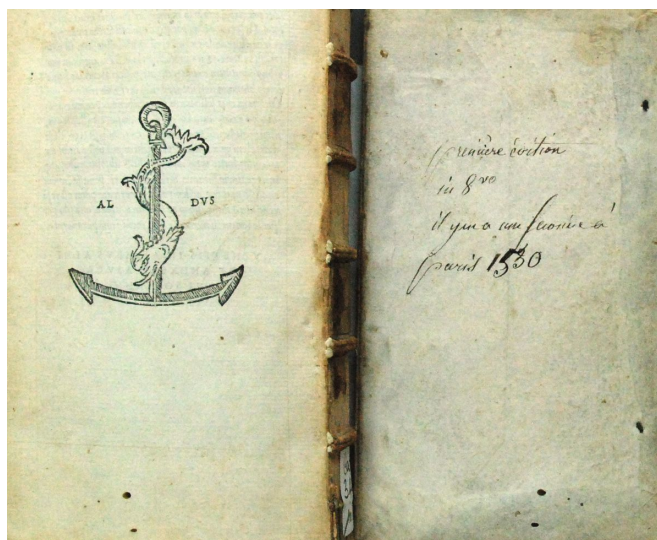 AL DVS
première édition
in 8vo
il y en a une seconde à
paris 1530